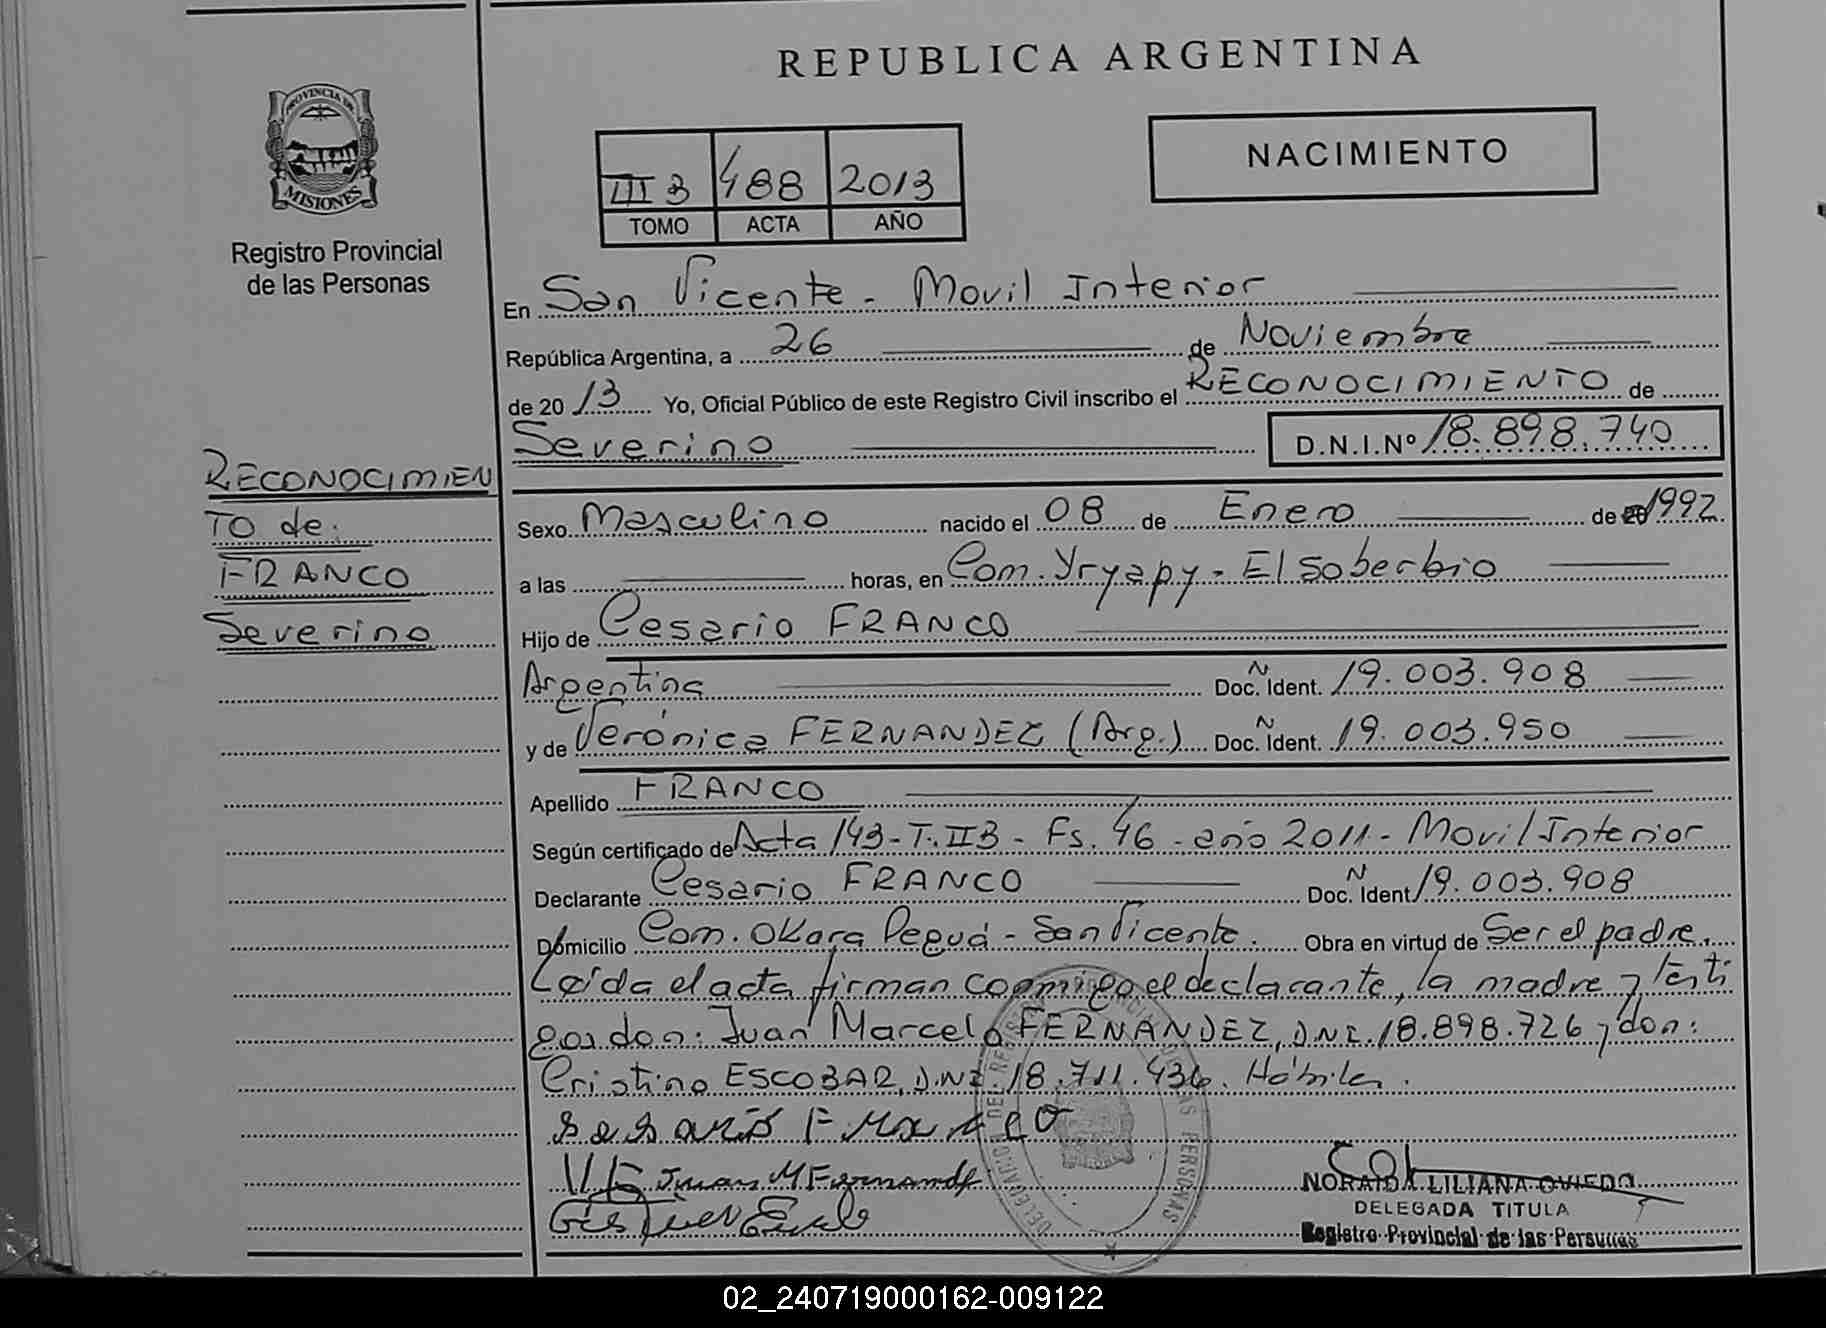 REPUBLICA ARGENTINA
PROVINCIA DE
MISIONES
Registro Provincial
de las Personas
III B 488 2013
TOMO ACTA AÑO
NACIMIENTO
En San Vicente - Movil Interior
República Argentina, a 26 de Noviembre
de 2013 Yo, Oficial Público de este Registro Civil inscribo el RECONOCIMIENTO de
Severino D.N.I.Nº 18.898.740
RECONOCIMIEN
TO de:
FRANCO
Severino
Sexo Masculino nacido el 08 de Enero de 20 1992
a las horas, en Com. Yryapy - El Soberbio
Hijo de Cesario FRANCO
Argentina Doc. Ident. Nº 19.003.908
y de Verónica FERNANDEZ (Arg.) Doc. Ident. Nº 19.003.950
Apellido FRANCO
Según certificado de Acta 143 - T. II B - Fs. 46 - año 2011 - Movil Interior
Declarante Cesario FRANCO Doc. Ident. N 19.003.908
Domicilio Com. Okara Peguá - San Vicente. Obra en virtud de Ser el padre.
Leída el acta firman conmigo el declarante, la madre y testi
gos don: Juan Marcelo FERNANDEZ, D.N.I. 18.898.726 y don:
Cristino ESCOBAR, D.N.I. 18.711.436. Hábiles.
sesario Franco
VF Juan M Fernande
NORAIDA LILIANA OVIEDO
DELEGADA TITULA
Registro Provincial de las Personas
02_240719000162-009122